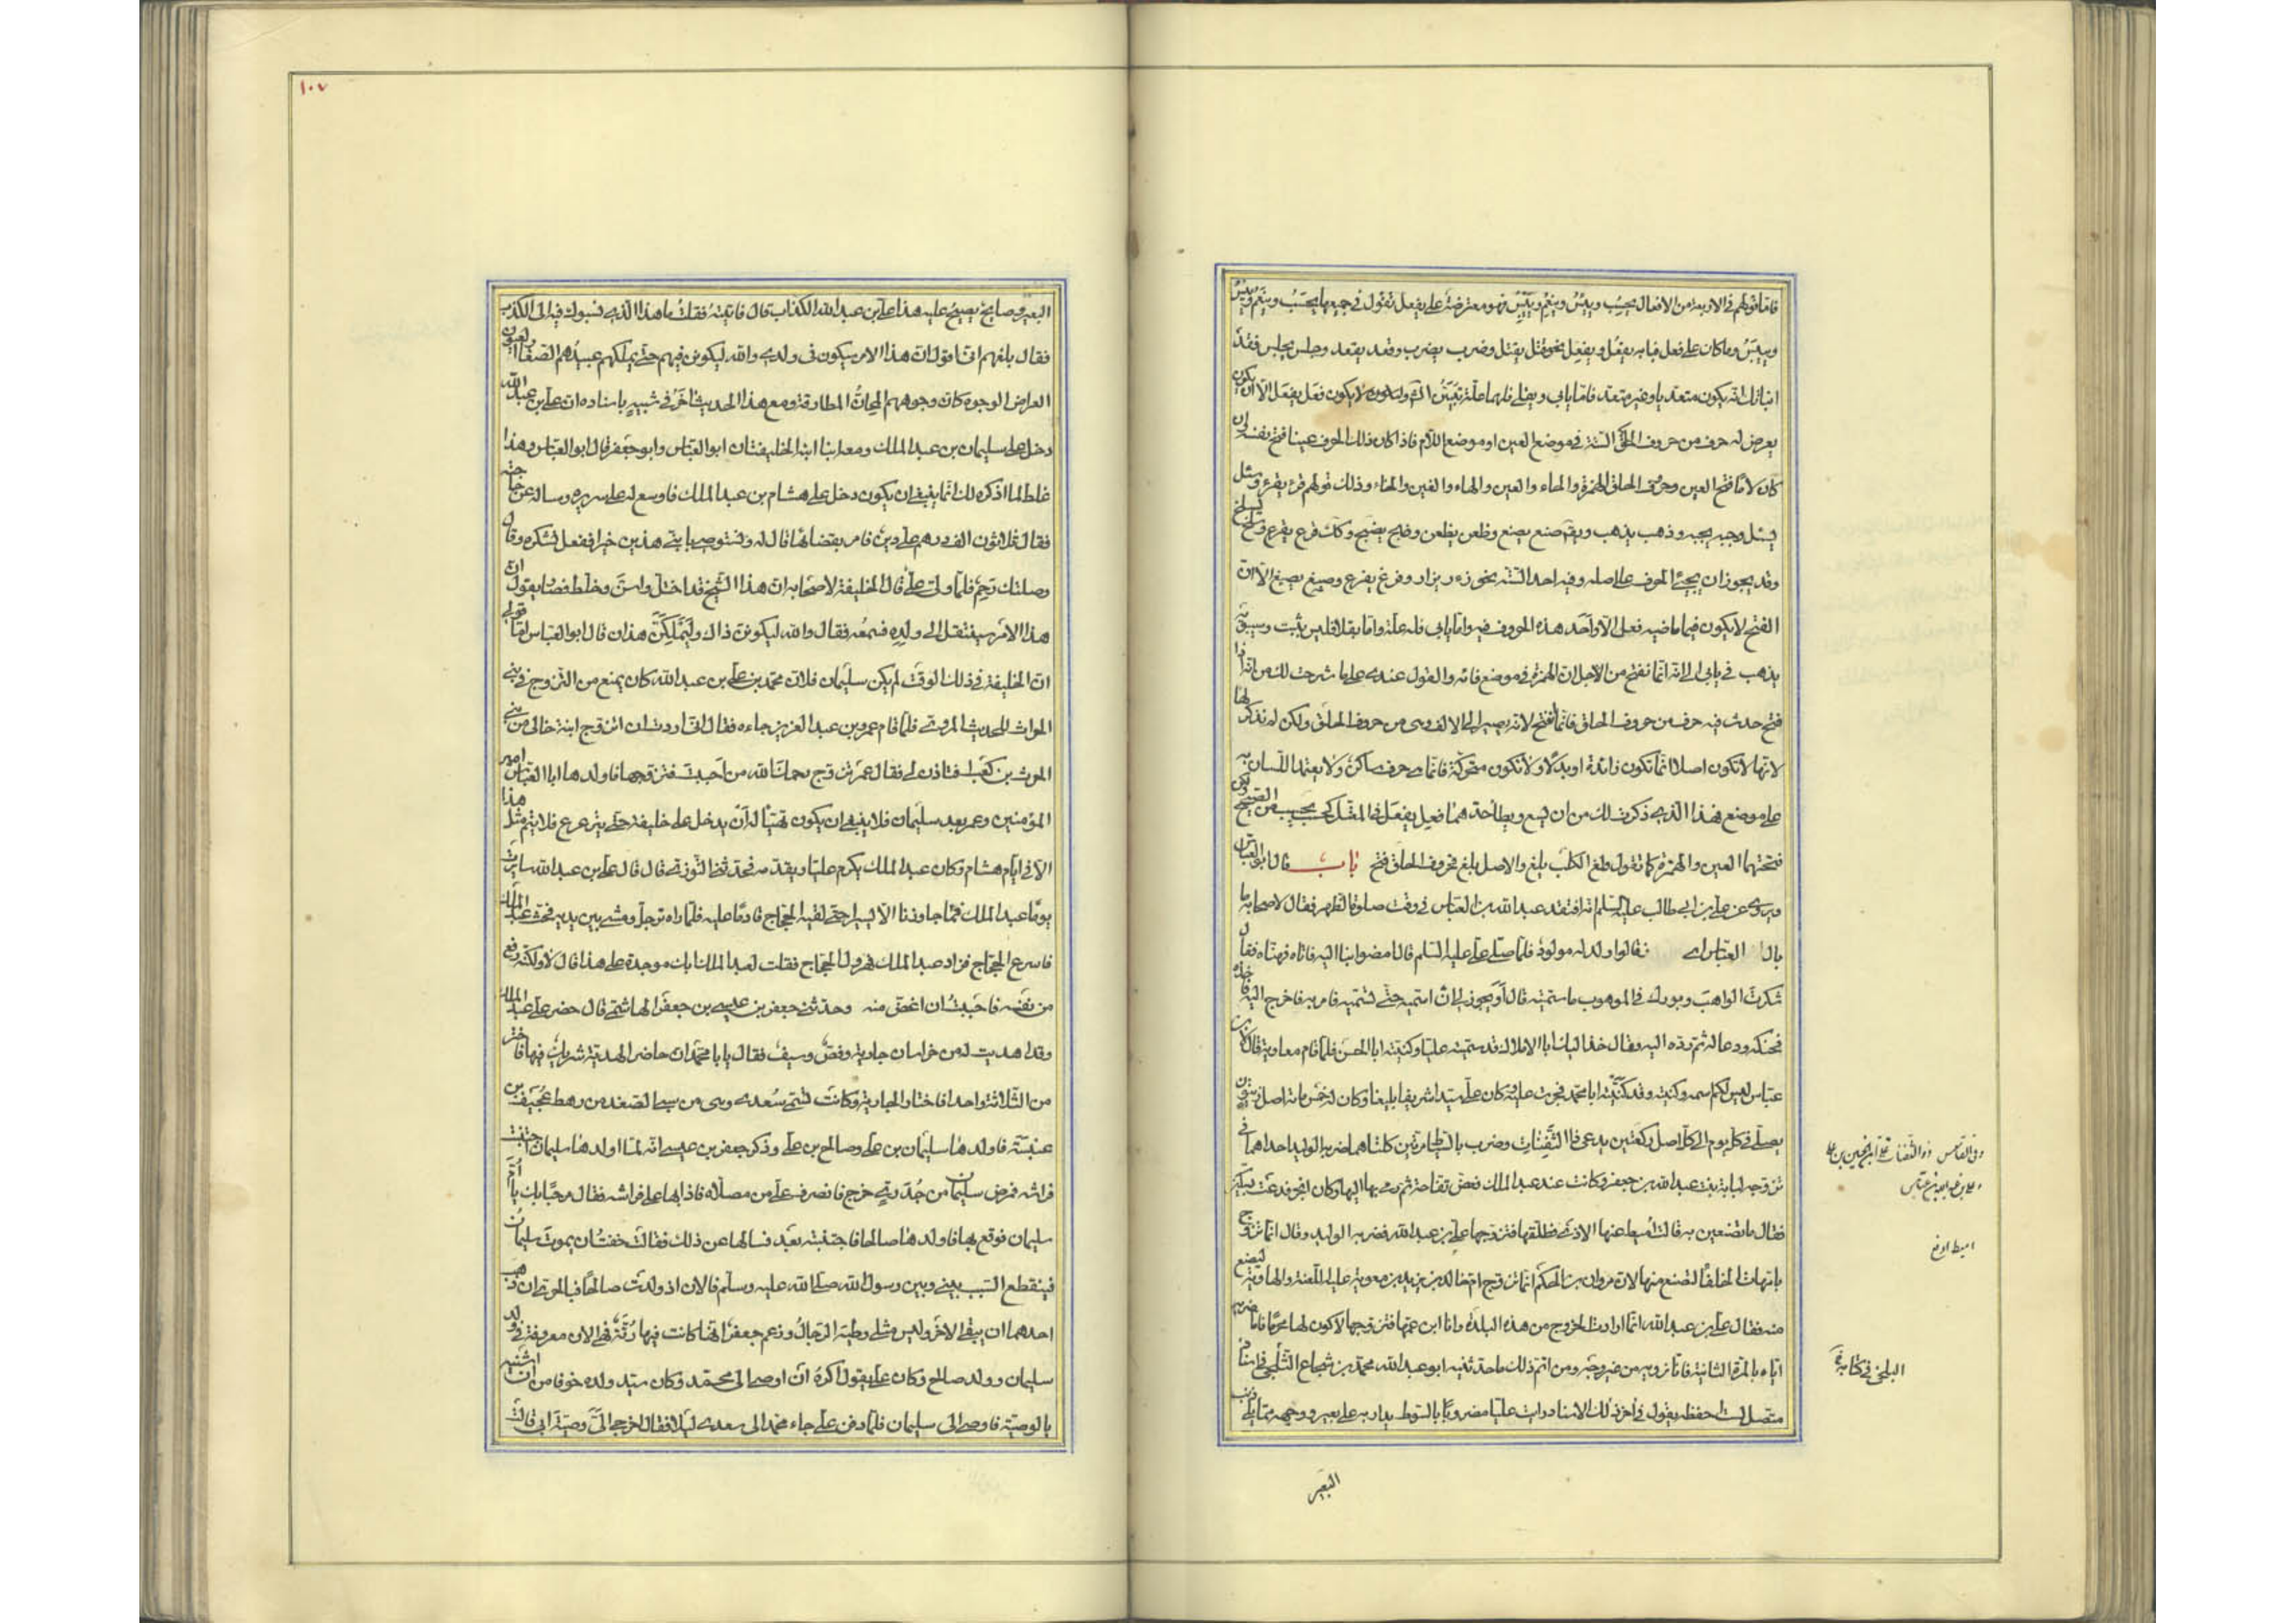 فاما قولهم فى الاربعة من الافعال يحسِب وييئِس وينعِم وييبِس فهو معترضة على يفعل تقول فى جميعها يحسَب وينعَم وييئَس
وييبَس وما كان على فعل فبابه يفعُل ويفعِل نحو قتل يقتل وضرب يضرب وقعد يقعد وجلس يجلس فقد
انبأتك انه يكون متعديا وغير متعد فاما يابى ويقلى فلهما علة تبين لا يكون فعل يفعل الا ان يكون
يعرض له حرف من حروف الحلق الستة فى موضع العين او موضع اللام فاذا كان ذلك الحرف عينا فتح نفسه وان
كان لاما فتح العين وحروف الحلق الهمزة والهاء والعين والحاء والغين والخاء وذلك قولهم قرء يقرء وسئل
يسئل وجبه يجبه وذهب يذهب وصنع يصنع وظعن يظعن وضبح يضبح وكذلك فرغ يفرغ وسلخ يسلخ
وقد يجوز ان يجيئ الحرف على اصله وفيه احد الستة نحو زءر يزأر وفرغ يفرغ وصبغ يصبغ الا ان
الفتح لا يكون فيما ماضيه فعل الا واحد هذه الحروف فيه واما يابى فله علة واما يقلا فليس بثبت وسيبويه
يذهب فى يابى الى انه انما تفتح من اجل ان الهمزة فى موضع فائه والقول عندى على ما شرحت لك من انه اذا
فتح حدث فيه حرف من حروف الحلق فانما انفتح لانه يصير الى الالف وهى من حروف الحلق ولكن لم نذكرها
لانها لا تكون اصلا انما تكون زائدة او بدلا ولا تكون متحركة فانما هى حرف ساكن ولا يعتمد اللسان به
على موضع فهذا الذى ذكرت لك من ان يسع ويطأ حدهما فعل يفعل فى المعتل كحسب يحسب من الصحيح ولكن
فتحتهما العين والهمزة كما تقول ولغ الكلب يلغ والاصل يلغ فحروف الحلق فتح باب قال ابو العباس
ويروى عن على بن ابى طالب عليه السلم انه افتقد عبد الله بن العباس فى وقت صلوة الظهر فقال لاصحابه ما
بال ابى العباس فقالوا ولد له مولود فلما صلى على عليه السلم قال امضوا بنا اليه فاتاه فهناه فقال
شكرت الواهب وبورك فى الموهوب ما سميته قال أو يجوز لى ان اسميه حتى تسميه فامر به فاخرج اليه فاخذه
فحنكه ودعا له ثم رده اليه وقال خذ اليك ابا الاملاك قد سميته عليا وكنيته ابا الحسن فلما قام معاوية قال لابن
عباس ليس لكم اسمه وكنيته وقد كنيته ابا محمد فجرت عليه وكان على سيدا شريفا بليغا وكان له خمس مائة اصل زيتون
يصلى فى كل يوم الى كل اصل ركعتين يدعى ذا الثفنات وضرب بالسياط مرتين كلتاهما ضربه الوليد احداهما فى
تزوجه لبابة بنت عبد الله بن جعفر وكانت عند عبد الملك فعض تفاحة ثم رمى بها اليها وكان ابخر فدعت بسكين
فقال ما تصنعين به قالت اميط عنها الاذى فطلقها فتزوجها على بن عبد الله فضربه الوليد وقال انما تتزوج
بامهات الخلفا لتضع منها لان مروان بن الحكم انما تزوج ام خالد بن يزيد بن معوية عليه اللعنة والهاوية ليضع
منه فقال على بن عبد الله انما ارادت الخروج من هذه البلدة وانا ابن عمها فتزوجتها لاكون لها محرما فاما ضربه
اياه بالمرة الثانية فانا نرويه من غير وجه ومن اتم ذلك ما حدثنيه ابو عبد الله محمد بن شجاع الثلجى فى اسناد
متصل لست احفظه يقول فى آخر ذلك الاسناد رايت عليا مضروبا بالسوط يدار به على بعير ووجهه مما يلى ذنب
البعير
وفى القاموس ذو الثفنات على بن الحسين بن على
وعلى بن عبد الله بن عباس
اميط ارفع
البلخى فى كتابه
١٠٧
البعير وصايح يصيح عليه هذا على بن عبد الله الكذاب قال فاتيته فقلت ما هذا الذى نسبوك فيه الى الكذب
فقال بلغهم انى اقول ان هذا الامر سيكون فى ولدى والله ليكونن فيهم حتى يملكهم عبيدهم الصغار العيون
العراض الوجوه كان وجوههم المجان المطارقة ومع هذا الحديث آخر فى شبيه باسناده ان على بن عبد الله
دخل على سليمان بن عبد الملك ومعه ابنا ابنه الخليفتان ابو العباس وابو جعفر قال ابو العباس وهذا
غلط لما اذكره لك انما ينبغى ان يكون دخل على هشام بن عبد الملك فاوسع له على سريره وساله عن حاجته
فقال ثلاثون الف درهم على دين فامر بقضائها قال له وتستوصى بابنى هذين خيرا ففعل فشكره وقال
وصلتك رحم فلما ولى على قال الخليفة لاصحابه ان هذا الشيخ قد اختل واسن وخلط فصار يقول ان
هذا الامر سينتقل الى ولده فسمعه فقال والله ليكونن ذاك وليملكن هذان قال ابو العباس اما قولى
ان الخليفة فى ذلك الوقت لم يكن سليمان فلان محمد بن على بن عبد الله كان يمنع من التزوج فى بنى
الحرث للحديث المروى فلما قام عمر بن عبد العزيز جاءه فقال انى اردت ان اتزوج ابنة خالى من بنى
الحرث بن كعب افتاذن لى فقال عمر تزوج رحمك الله من احببت فتزوجها فاولدها ابا العباس امير
المؤمنين وعمر بعد سليمان فلا ينبغى ان يكون تهيأ له ان يدخل على خليفة حتى يترعرع فلا يتم مثل هذا
الا فى ايام هشام وكان عبد الملك يكرم عليا ويقدمه فحدثنى التوزى قال قال على بن عبد الله سايرت
يوما عبد الملك فما جاوزنا الا يسيرا حتى لقيه الحجاج قادما عليه فلما راه ترجل ومشى بين يديه فحث عبد الملك
فاسرع الحجاج فزاد عبد الملك فهرول الحجاج فقلت لعبد الملك ابك موجدة على هذا قال لا ولكنه رفع
من نفسه فاحببت ان اغض منه وحدثنى جعفر بن عيسى بن جعفر الهاشمى قال حضر على عبد الملك
وقد اهديت له من خراسان جارية وفص وسيف فقال يا با محمد ان حاضر الهدية شريك فيها فاختر
من الثلاثة واحدا فاختار الجارية وكانت تسمى سعدى وهى من سبى الصغد من رهط عجيف بن
عنبسة فاولدها سليمان بن على وصالح بن على وذكر جعفر بن عيسى انه لما اولدها سليمان اجتنبت
فراشه فمرض سليمان من جدرى خرج فانصرف على من مصلاه فاذا بها على فراشه فقال مرحبا بك يا ام
سليمان فوقع بها فاولدها صالحا فاجتنبته بعد فسالها عن ذلك فقالت خفت ان يموت سليمان
فينقطع السبب بينى وبين رسول الله صلى الله عليه وسلم فالان اذ ولدت صالحا فبالحرى ان ذهب
احدهما ان يبقى الاخر وليس مثلى وطئه الرجال وزعم جعفر انها كانت فيها رتة فهى الان معروفة فى ولد
سليمان وولد صالح وكان على يقول اكره ان اوصى الى محمد وكان سيد ولده خوفا من ان اشينه
بالوصية فاوصى الى سليمان فلما دفن على جاء محمد الى سعدى ليلا فقال اخرجى الى وصية ابى قالت